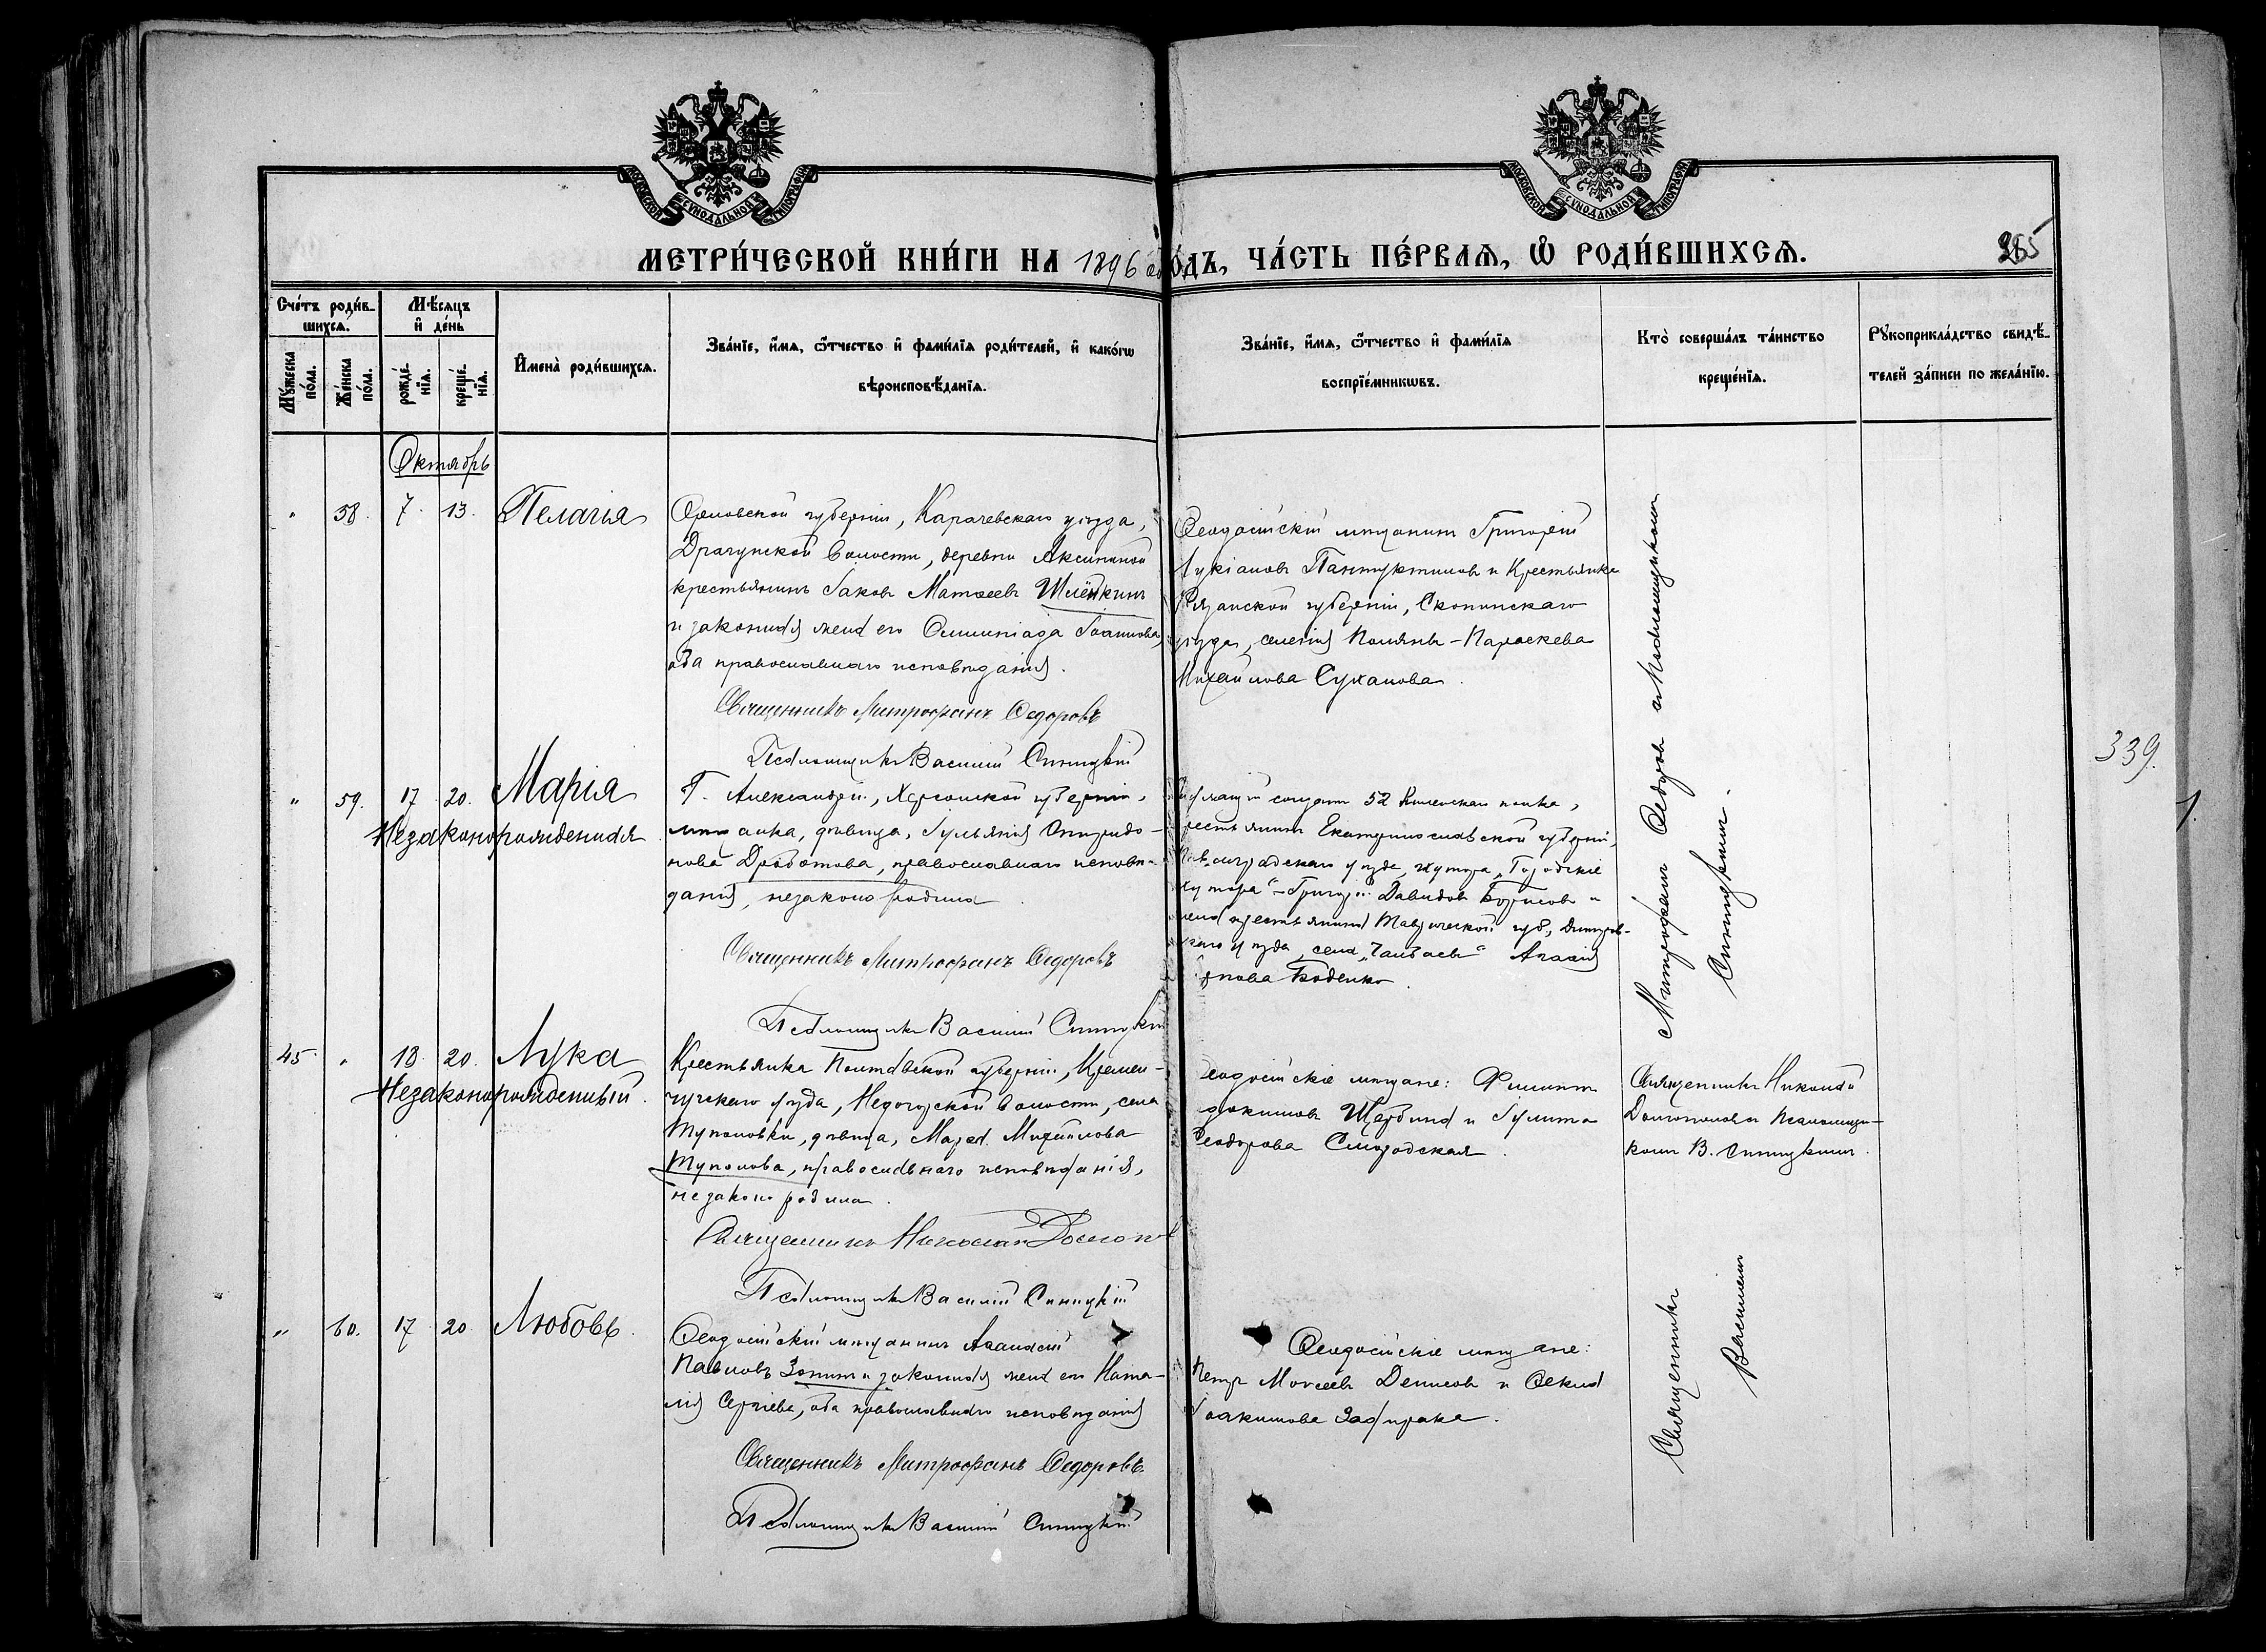 МОСКОВСКОЙ СѴНОДАЛЬНОЙ ТИПОГРАФІИ
МОСКОВСКОЙ СѴНОДАЛЬНОЙ ТИПОГРАФІИ
МЕТРИ́ЧЕСКОЙ КНИ́ГИ НА 1896 го́дъ, ЧА́СТЬ ПЕ́РВАЯ, Ѡ҆ РОДИ́ВШИХСЯ.
365
Сче́тъ роди́в-
шихся.
Мѣ́сяцъ
и҆ де́нь
Мꙋ́жеска по́ла.
Же́нска по́ла.
рожде́-
нїя.
креще́-
нїя.
И҆мена̀ роди́вшихся.
Зва́нїе, и҆́мя, ѻ҆́тчество и҆ фами́лїя роди́телей, и҆ како́гѡ
вѣроисповѣ́данїя.
Зва́нїе, и҆́мя, ѻ҆́тчество и҆ фами́лїя
воспрїе́мникѡвъ.
Кто̀ соверша́лъ та́инство
креще́нїя.
Рꙋкоприкла́дство свидѣ́-
телей за́писи по жела́нїю.
Октябрь
" 58. 7. 13. Пелагія
Орловской губерніи, Карачевскаго уѣзда,
Драгунской волости, деревни Аксининой
крестьянинъ Іаковъ Матѳеевъ Шлёнкинъ
и законная жена его Олимпіада Іоаннова,
оба православнаго исповѣданія.
Священникъ Митрофанъ Ѳедоровъ
Псаломщикъ Василій Синицкій
Ѳеодосійскій мѣщанинъ Григорій
Лукіановъ Пантуктиловъ и Крестьянка
Рязанской губерніи, Скопинскаго
уѣзда, селенія Поляны - Параскева
Михайлова Суханова.
Митрофанъ Ѳедоровъ и Псаломщикомъ
Синицкимъ.
" 59. 17 20. Марія
Незаконорожденная
Г. Александріи, Херсонской губерніи,
мѣщанка, дѣвица, Іуліанія Спиридо-
нова Дработова, православнаго исповѣ-
данія, незаконо родила
Священникъ Митрофанъ Ѳедоровъ
Псаломщикъ Василій Синицкій
солдатъ 52 Виленскаго полка,
крестьянинъ Екатеринославской губерніи,
Павлоградскаго уѣзда, хутора „Городскіе
хутора" - Григорій Давидовъ Борисовъ и
жена крестьянина Таврической губ, Днѣпров-
скаго уѣзда, села „Чалбасы" Агаѳія
Боденко.
339.
1.
45 " 18. 20. Лука
Незаконорожденный.
Крестьянка Полтавской губерніи, Кремен-
чугскаго уѣзда, Недогарской волости, села
Тупаловки, дѣвица, Михайлова
Туполова, православнаго исповѣданія,
незаконо родила.
Священникъ Николай
Псаломщикъ Василій Синицкій
Ѳеодосійскіе мѣщане: Филиппъ
Іоакимовъ Щербина и Іулитта
Ѳеодорова Смородская.
Священникъ Николай
Долгополовъ и Псаломщи-
комъ В. Синицкимъ.
" 60. 17 20 Любовь.
Ѳеодосійскій мѣщанинъ Аѳанасій
Павловъ Зотинъ и законная жена его Ната-
лія Сергіева, оба православнаго исповѣданія
Священникъ Митрофанъ Ѳедоровъ.
Псаломщикъ Василій Синицкій
Ѳеодосійскіе мѣщане:
Петръ Моѵсеевъ Денисовъ и Ѳекла
Іоакимова Зафираки.
Священникъ
Василіемъ